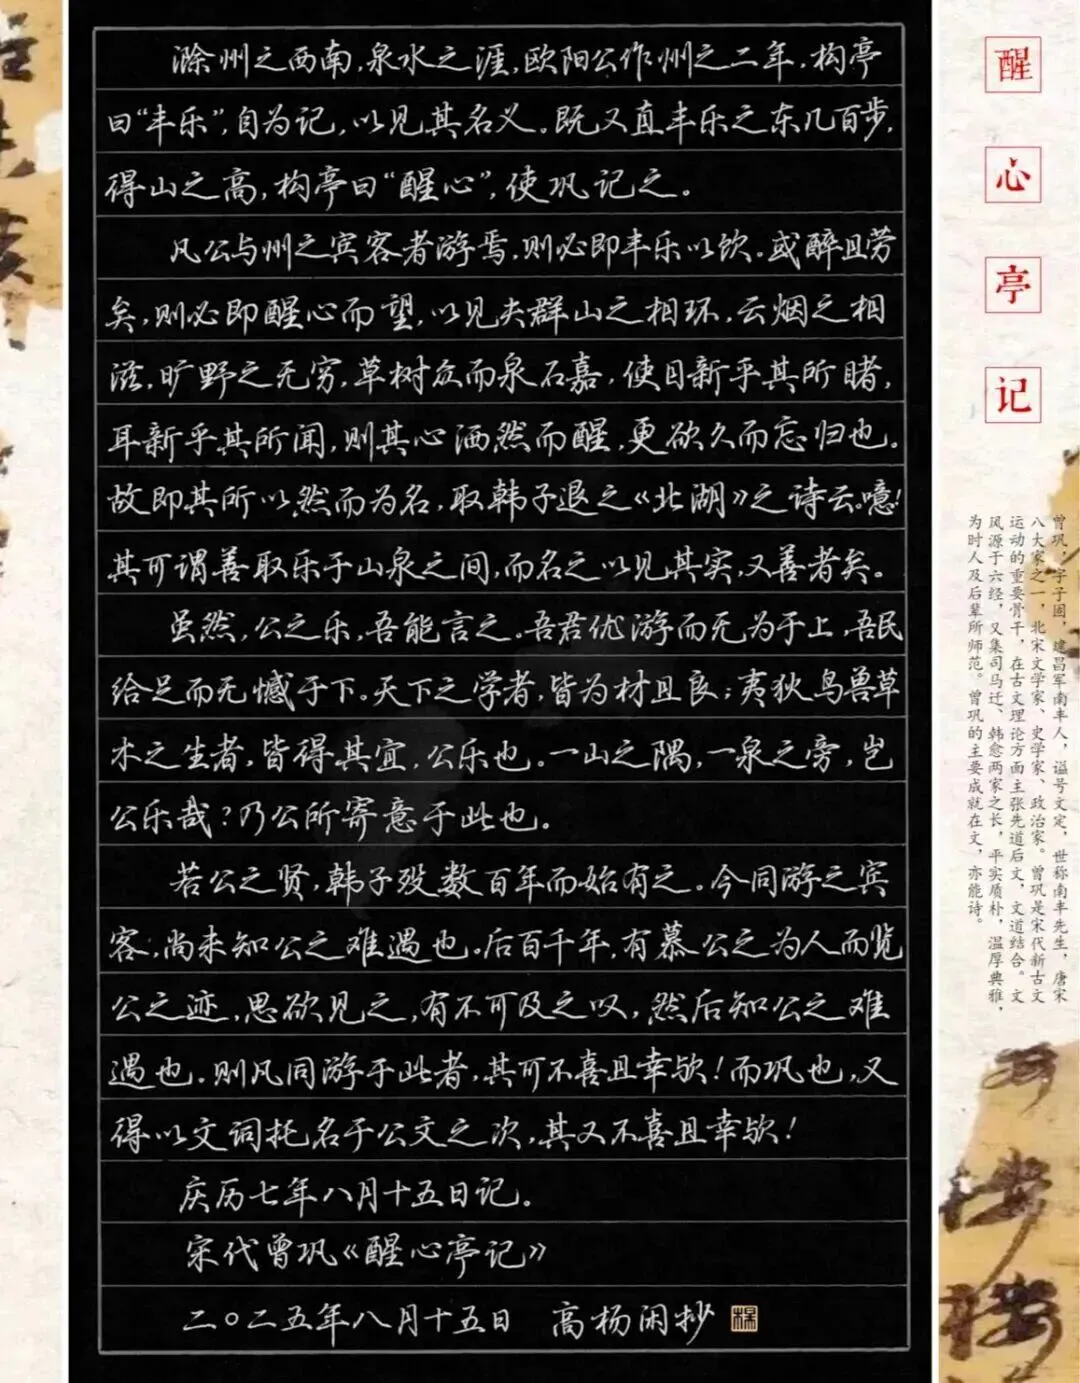 滁州之西南,泉水之涯,欧阳公作州之二年,构亭
曰“丰乐”,自为记,以见其名义。既又直丰乐之东几百步,
得山之高,构亭曰“醒心”,使巩记之。
凡公与州之宾客者游焉,则必即丰乐以饮。或醉且劳
矣,则必即醒心而望,以见夫群山之相环,云烟之相
滋,旷野之无穷,草树众而泉石嘉,使目新乎其所睹,
耳新乎其所闻,则其心洒然而醒,更欲久而忘归也。
故即其所以然而为名,取韩子退之《北湖》之诗云。噫!
其可谓善取乐于山泉之间,而名之以见其实,又善者矣。
虽然,公之乐,吾能言之。吾君优游而无为于上,吾民
给足而无憾于下。天下之学者,皆为材且良;夷狄鸟兽草
木之生者,皆得其宜,公乐也。一山之隅,一泉之旁,岂
公乐哉?乃公所寄意于此也。
若公之贤,韩子殁数百年而始有之。今同游之宾
客,尚未知公之难遇也。后百千年,有慕公之为人而览
公之迹,思欲见之,有不可及之叹,然后知公之难
遇也。则凡同游于此者,其可不喜且幸欤!而巩也,又
得以文词托名于公文之次,其又不喜且幸欤!
庆历七年八月十五日记。
宋代曾巩《醒心亭记》
二〇二五年八月十五日 高杨闲抄
醒心亭记
曾巩,字子固,建昌军南丰人,谥号文定,世称南丰先生,唐宋
八大家之一,北宋文学家、史学家、政治家。曾巩是宋代新古文
运动的重要骨干,在古文理论方面主张先道后文,文道结合。文
风源于六经,又集司马迁、韩愈两家之长,平实质朴,温厚典雅,
为时人及后辈所师范。曾巩的主要成就在文,亦能诗。